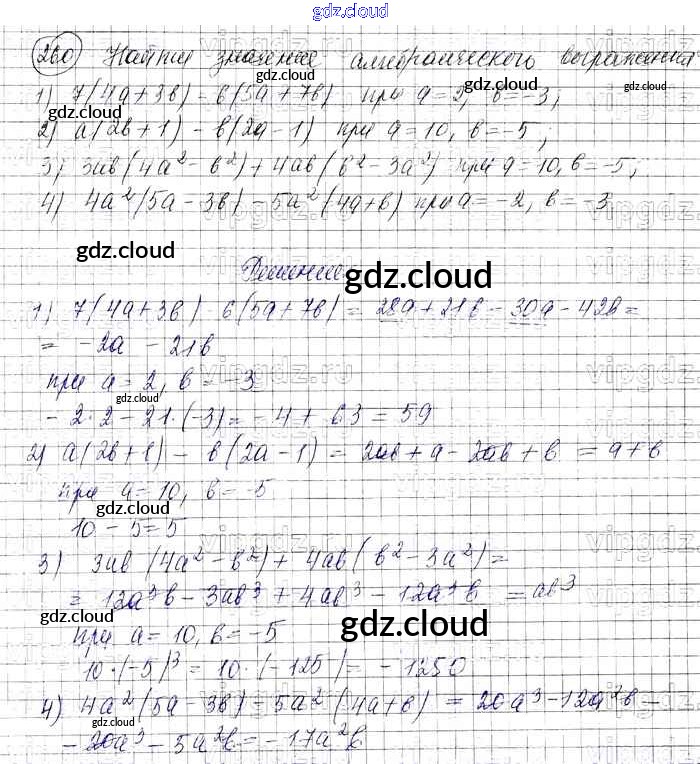 gdz.cloud
260 Найти значение алгебраического выражения
1) 7(4a+3b) - 6(5a+7b) при a=2, b=-3;
2) a(2b+1) - b(2a-1) при a=10, b=-5;
3) 3ab(4a²-b²)+4ab(b²-3a²) при a=10, b=-5;
4) 4a²(5a-3b)-5a²(4a+b) при a=-2, b=-3
Решение
gdz.cloud
1) 7(4a+3b) 6(5a+7b) = 28a+21b-30a-42b=
= -2a -21b
при a=2, b=-3
-2·2-21·(-3)=-4+63=59
2) a(2b+1) - b(2a-1) = 2ab+a-2ab+b = a+b
при a=10, b=-5
10-5=5
3) 3ab (4a²-b²)+ 4ab(b²-3a²)=
= 12a³b-3ab³+4ab³-12a³b = ab³
при a=10, b=-5
gdz.cloud
10·(-5)³=10·(-125)=-1250
4) 4a²(5a-3b)-5a²(4a+b) = 20a³-12a²b-
-20a³-5a²b=-17a²b
gdz.cloud